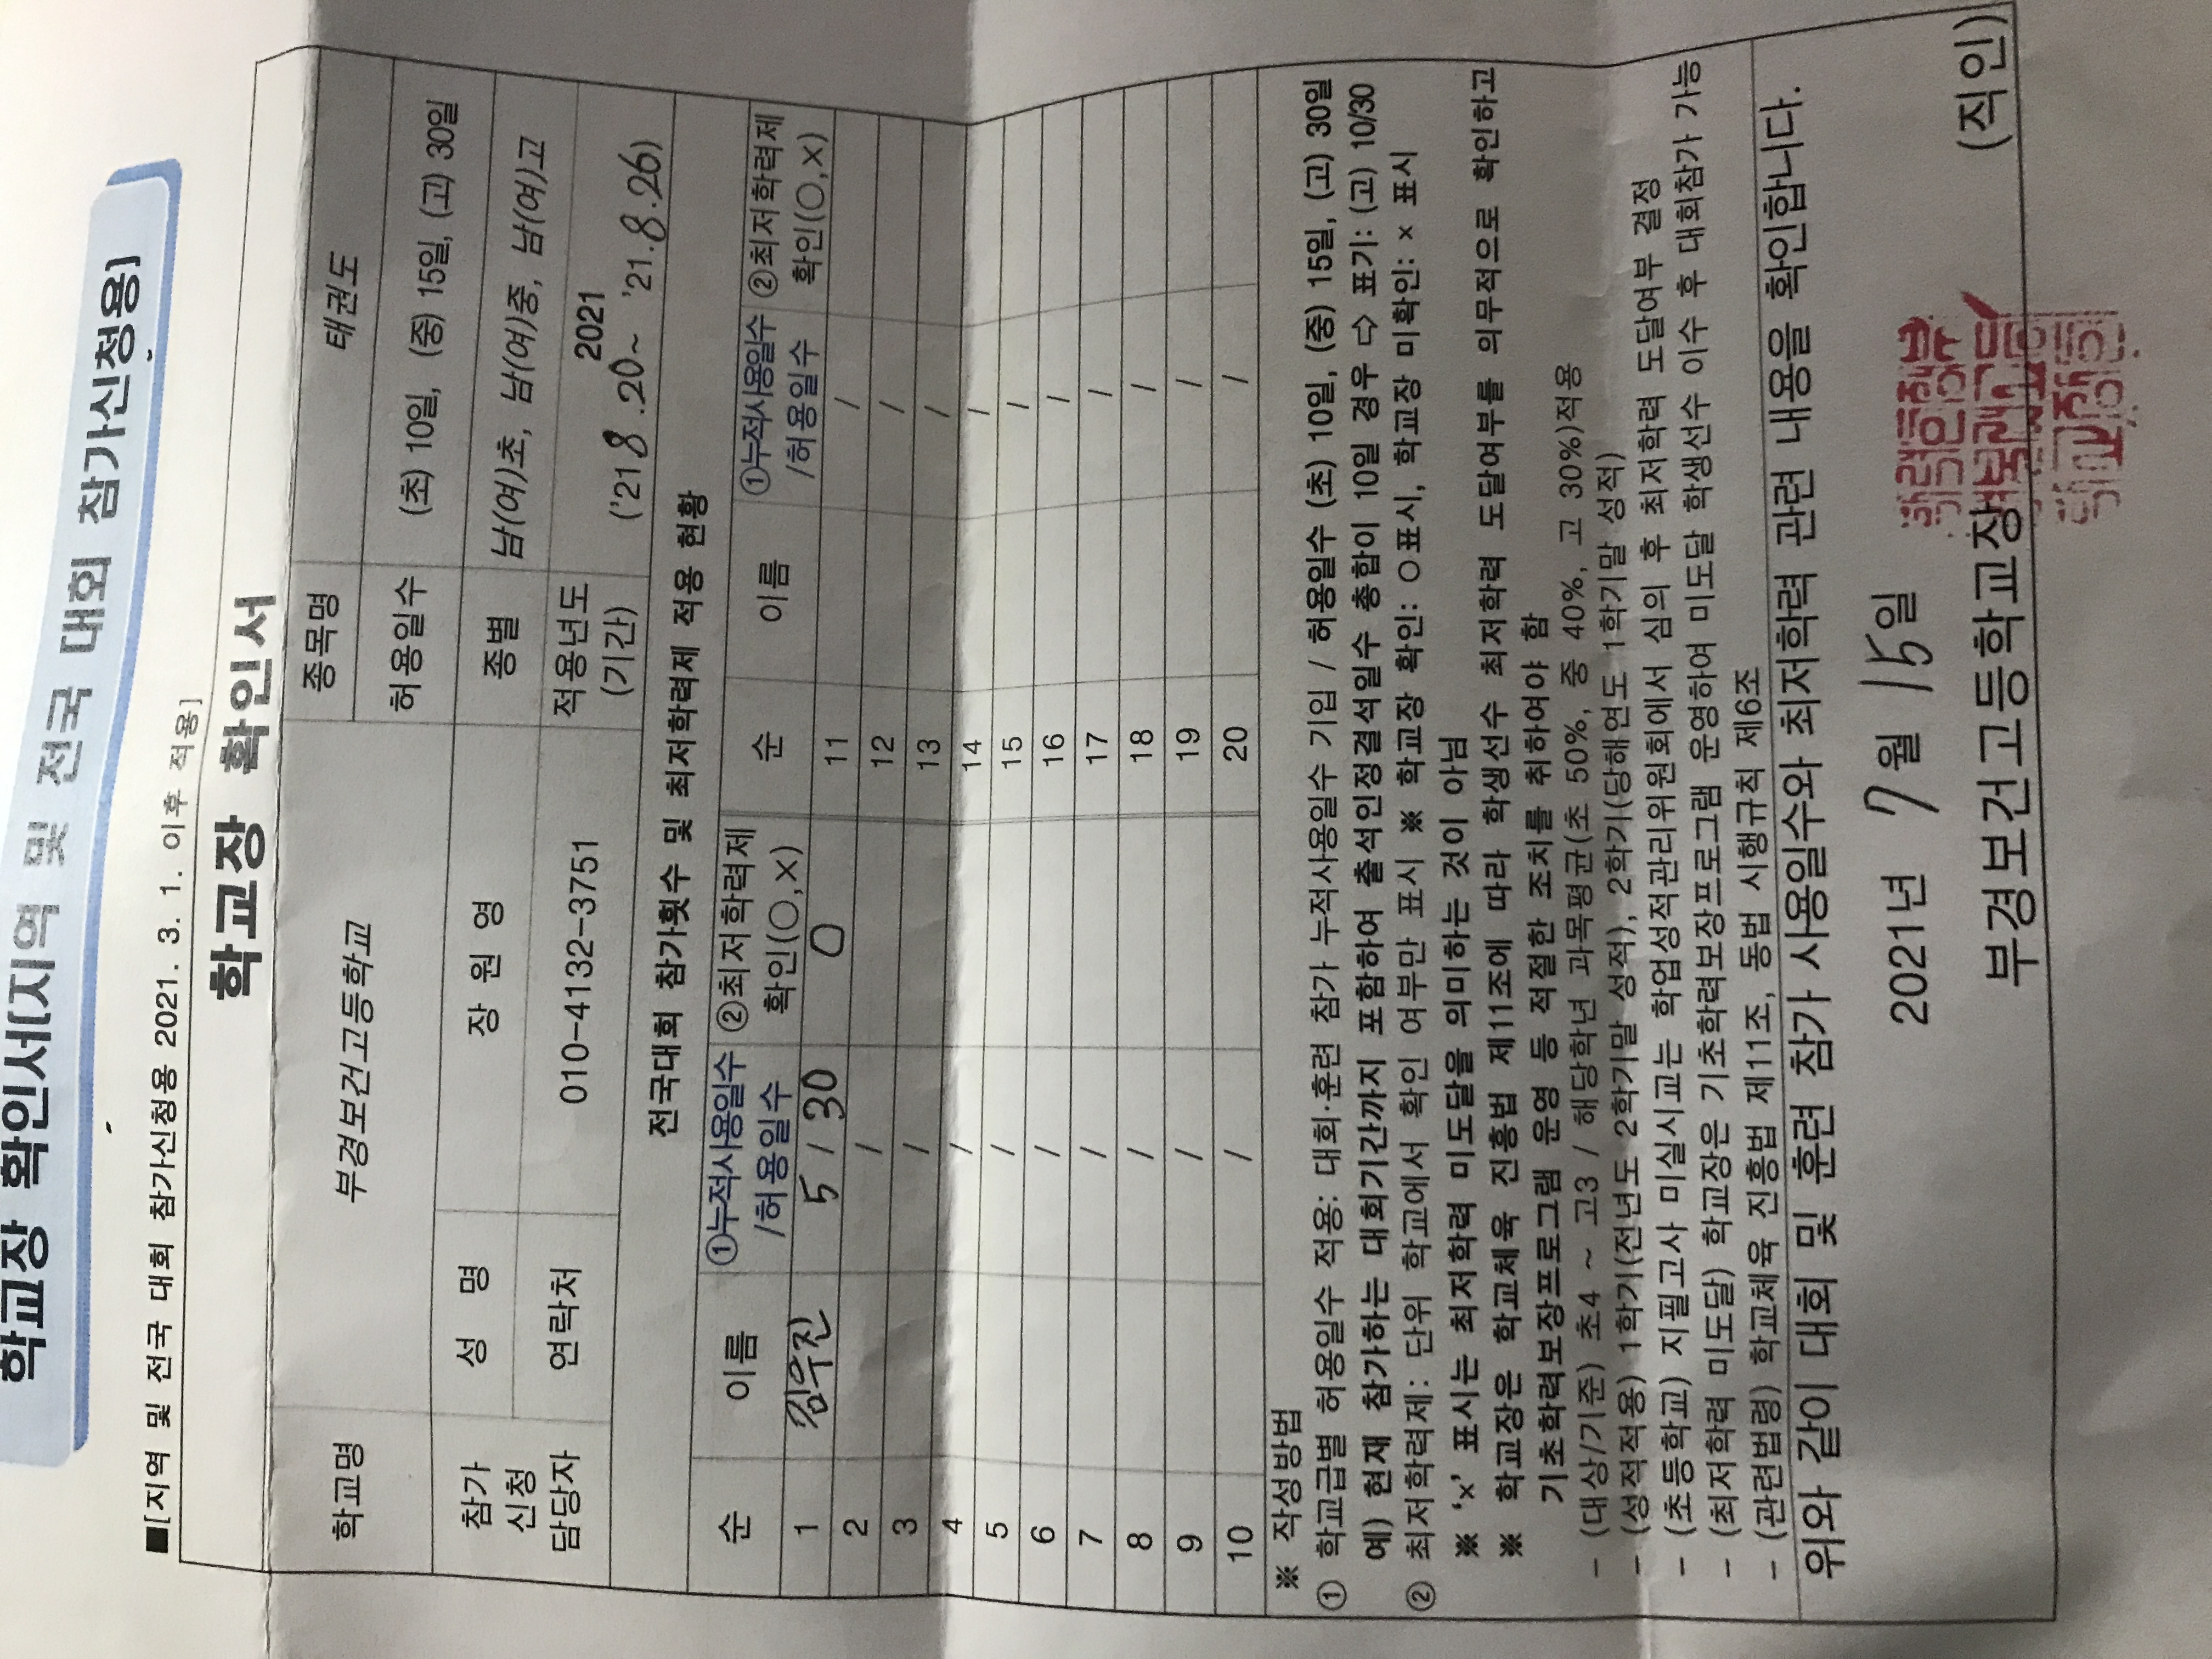 학교장 확인서(지역 및 전국 대회 참가신청용)
■[지역 및 전국 대회 참가신청용 2021. 3. 1. 이후 적용]
학교장 확인서
학교명 부경보건고등학교 종목명 태권도
허용일수 (초) 10일, (중) 15일, (고) 30일
참가 신청 담당자 성 명 장 원 영 종별 남(여)초, 남(여)중, 남(여)고
연락처 010-4132-3751 적용년도 (기간) 2021
('21 8.20~ '21.8.26)
전국대회 참가횟수 및 최저학력제 적용 현황
순 이름 ①누적사용일수 /허용일수 ②최저학력제 확인(○,×) 순 이름 ①누적사용일수 /허용일수 ②최저학력제 확인(○,×)
1 김우진 5 / 30 O 11 /
2 / 12 /
3 / 13 /
4 / 14 /
5 / 15 /
6 / 16 /
7 / 17 /
8 / 18 /
9 / 19 /
10 / 20 /
※ 작성방법
① 학교급별 허용일수 적용: 대회·훈련 참가 누적사용일수 기입 / 허용일수 (초) 10일, (중) 15일, (고) 30일
예) 현재 참가하는 대회기간까지 포함하여 출석인정결석일수 총합이 10일 경우 ⇨ 표기: (고) 10/30
② 최저학력제: 단위 학교에서 확인 여부만 표시 ※ 학교장 확인: ○표시, 학교장 미확인: × 표시
※ '×' 표시는 최저학력 미도달을 의미하는 것이 아님
※ 학교장은 학교체육 진흥법 제11조에 따라 학생선수 최저학력 도달여부를 의무적으로 확인하고
기초학력보장프로그램 운영 등 적절한 조치를 취하여야 함
- (대상/기준) 초4 ~ 고3 / 해당학년 과목평균(초 50%, 중 40%, 고 30%)적용
- (성적적용) 1학기(전년도 2학기말 성적), 2학기(당해연도 1학기말 성적)
- (초등학교) 지필고사 미실시교는 학업성적관리위원회에서 심의 후 최저학력 도달여부 결정
- (최저학력 미도달) 학교장은 기초학력보장프로그램 운영하여 미도달 학생선수 이수 후 대회참가 가능
- (관련법령) 학교체육 진흥법 제11조, 동법 시행규칙 제6조
위와 같이 대회 및 훈련 참가 사용일수와 최저학력 관련 내용을 확인합니다.
2021년 7월 15일
부경보건고등학교장 (직인)